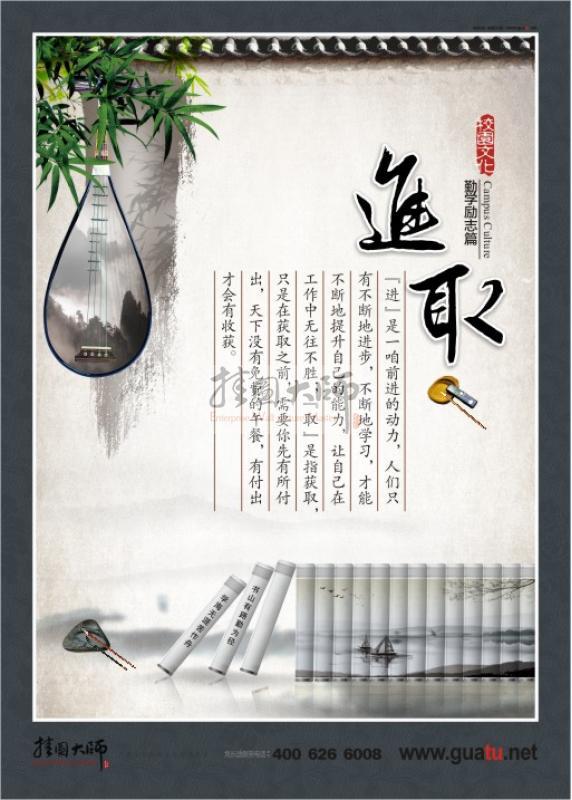 校園文化
Campus Culture
勤学励志篇
進取
『进』是一咱前进的动力，人们只
有不断地进步，不断地学习，才能
不断地提升自己的能力，让自己在
工作中无往不胜；『取』是指获取，
只是在获取之前，需要你先有所付
出，天下没有免费的午餐，有付出
才会有收获。
挂图大师
书山有路勤为径
学海无涯苦作舟
挂图大师
400 626 6008
www.guatu.net